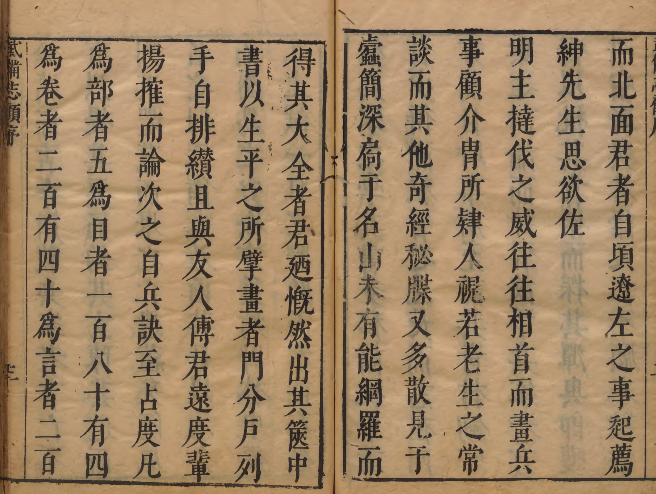 而北面君者自頃遼左之事起薦
紳先生思欲佐
明主撻伐之威往往相首而畫兵
事顧介冑所肄人視若老生之常
談而其他奇經秘牒又多散見于
蠹簡深扃于名山未有能網羅而
得其大全者君廼慨然出其篋中
書以生平之所擘畫者門分戶列
手自排纘且與友人傅君遠度輩
揚搉而論次之自兵訣至占度凡
為部者五為目者一百八十有四
為卷者二百有四十為言者二百
武備志顧序